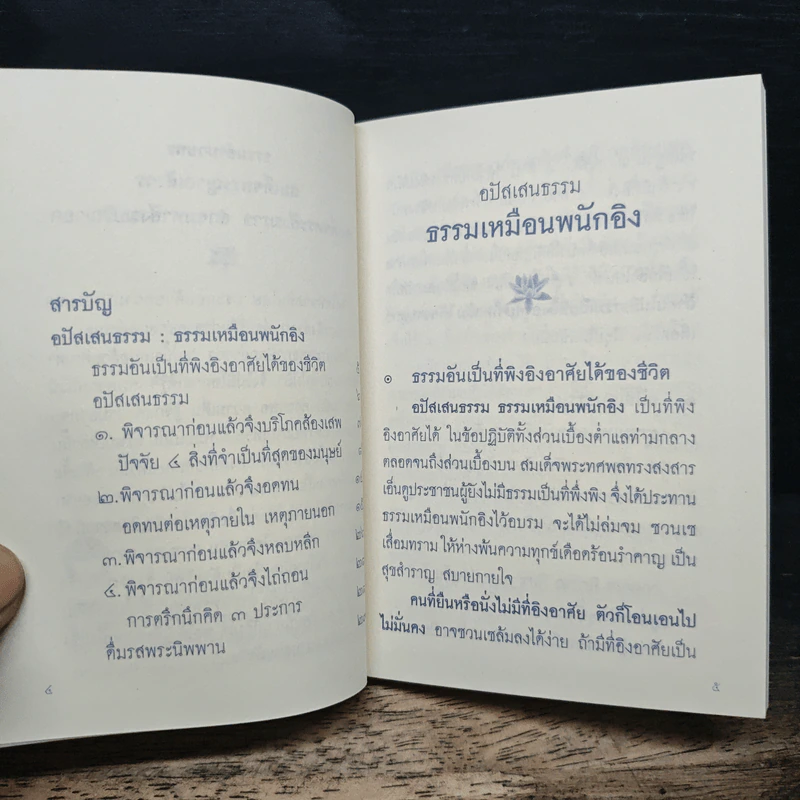 สารบัญ
อปัสเสนธรรม : ธรรมเหมือนพนักอิง
ธรรมอันเป็นที่พิงอิงอาศัยได้ของชีวิต
อปัสเสนธรรม
๑. พิจารณาก่อนแล้วจึงบริโภคส้องเสพ
ปัจจัย ๔ สิ่งที่จำเป็นที่สุดของมนุษย์
๒. พิจารณาก่อนแล้วจึงอดทน
อดทนต่อเหตุภายใน เหตุภายนอก
๓. พิจารณาก่อนแล้วจึงหลบหลีก
๔. พิจารณาก่อนแล้วจึงไถ่ถอน
การตริกนึกคิด ๓ ประการ
ดื่มรสพระนิพพาน
๔
อปัสเสนธรรม
ธรรมเหมือนพนักอิง
๑ ธรรมอันเป็นที่พิงอิงอาศัยได้ของชีวิต
อปัสเสนธรรม ธรรมเหมือนพนักอิง เป็นที่พิง
อิงอาศัยได้ ในข้อปฏิบัติทั้งส่วนเบื้องต่ำแลท่ามกลาง
ตลอดจนถึงส่วนเบื้องบน สมเด็จพระทศพลทรงสงสาร
เอ็นดูประชาชนผู้ยังไม่มีธรรมเป็นที่พึ่งพิง จึงได้ประทาน
ธรรมเหมือนพนักอิงไว้อบรม จะได้ไม่ล่มจม ซวนเซ
เสื่อมทราม ให้ห่างพ้นความทุกข์เดือดร้อนรำคาญ เป็น
สุขสำราญ สบายกายใจ
คนที่ยืนหรือนั่งไม่มีที่อิงอาศัย ตัวก็โอนเอนไป
ไม่มั่นคง อาจซวนเซล้มลงได้ง่าย ถ้ามีที่อิงอาศัยเป็น
๕